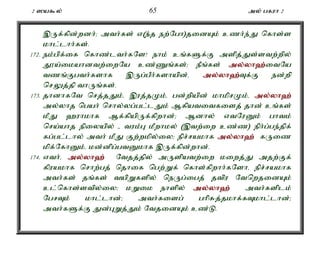 2 ஸயகூல் 65 அல் பகரா 2
இருக்கின்றனர்; அவர்கள் எ(ந்த நற்போ)தனையும் உணர்ந்து கொள்ள
மாட்டார்கள்.
172. நம்பிக்கை கொண்டவர்களே! நாம் உங்களுக்கு அளித்துள்ளவற்றில்
தூய்மையானவற்றையே உண்ணுங்கள்; நீங்கள் அல்லாஹ்வையே
வணங்குபவர்களாக இருப்பீர்களாயின், அல்லாஹ்வுக்கு நன்றி
செலுத்தி வாருங்கள்.
173. தானாகவே செத்ததும், இரத்தமும், பன்றியின் மாமிசமும், அல்லாஹ்
அல்லாத பெயர் சொல்லப்பட்டதும் ஆகியவைகளைத் தான் உங்கள்
மீது ஹராமாக ஆக்கியிருக்கிறான்; ஆனால் எவரேனும் பாவம்
செய்யாத நிலையில் - வரம்பு மீறாமல் (இவற்றை உண்ண) நிர்ப்பந்திக்
கப்பட்டால் அவர் மீது குற்றமில்லை; நிச்சயமாக அல்லாஹ் கருணை
மிக்கோனும், மன்னிப்பவனுமாக இருக்கின்றான்.
174. எவர், அல்லாஹ் வேதத்தில் அருளியவற்றை மறைத்து அதற்குக்
கிரயமாக சொற்பத் தொகை பெற்றுக் கொள்கிறார்களோ, நிச்சயமாக
அவர்கள் தங்கள் வயிறுகளில் நெருப்பைத் தவிர வேறெதனையும்
உட்கொள்ளவில்லை; மறுமை நாளில் அல்லாஹ் அவர்களிடம்
பேசவும் மாட்டான்; அவர்களைப் பரிசுத்தமாக்கவுமாட்டான்;
அவர்களுக்கு துன்புறுத்தும் வேதனையும் உண்டு.